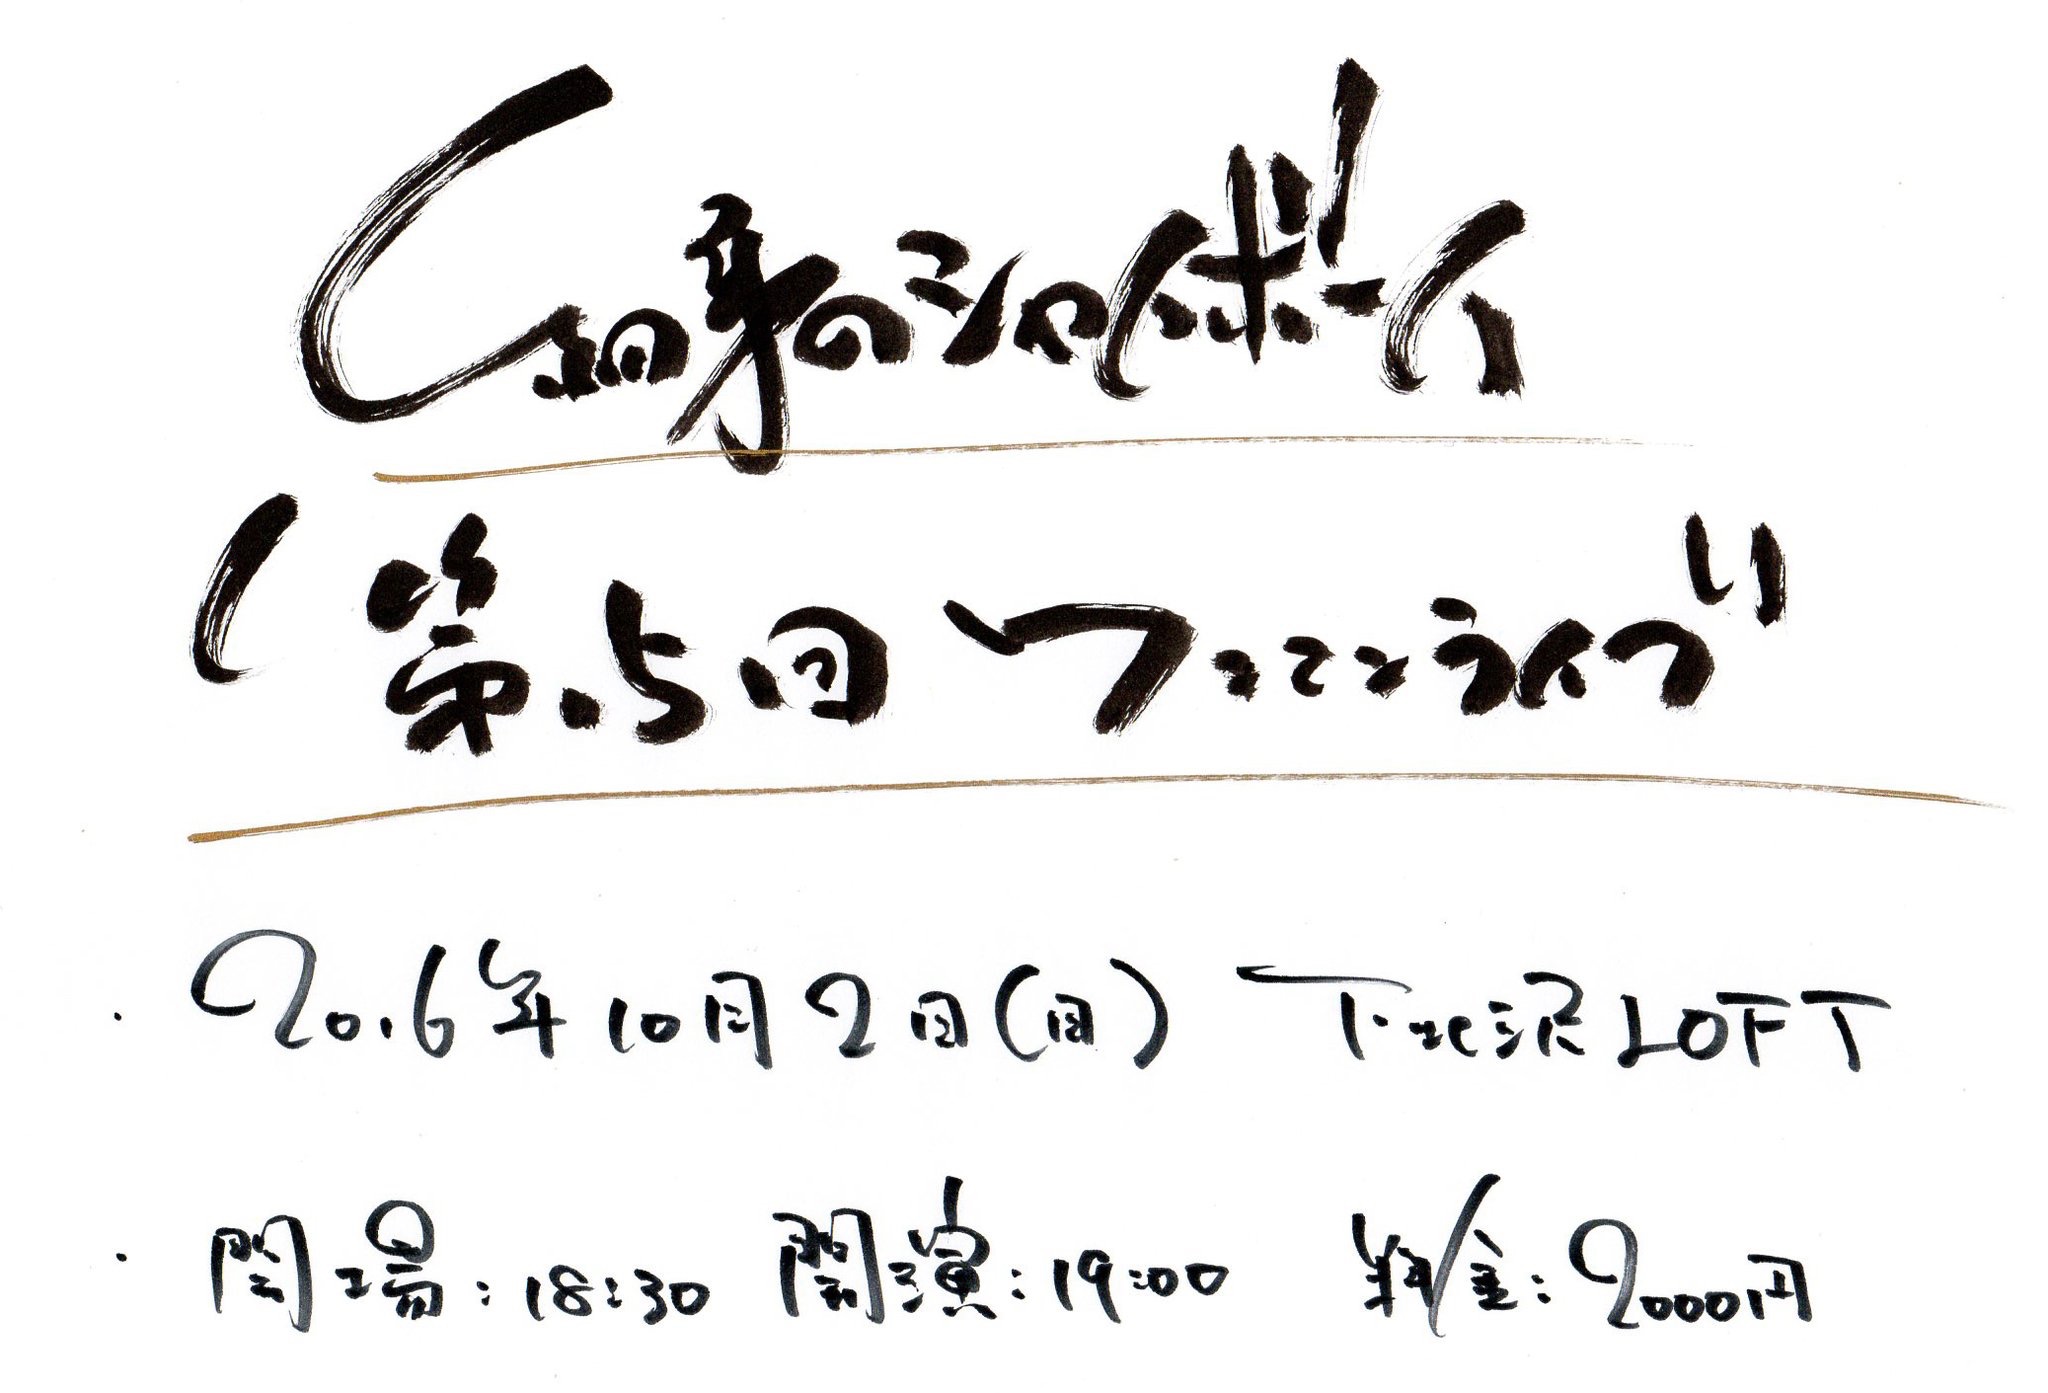 細身のシャイボーイ
第5回ワンマンライブ
2016年10月2日(日) 下北沢LOFT
開場:18:30 開演:19:00 料金:2000円